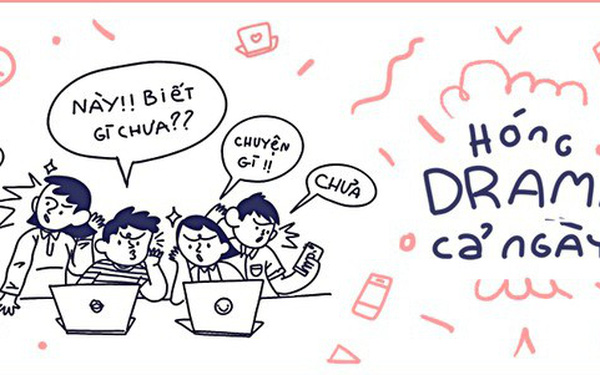 NÀY!! BIẾT
GÌ CHƯA??
CHUYỆN
GÌ!!
CHƯA
HÓNG
DRAMA
CẢ NGÀY